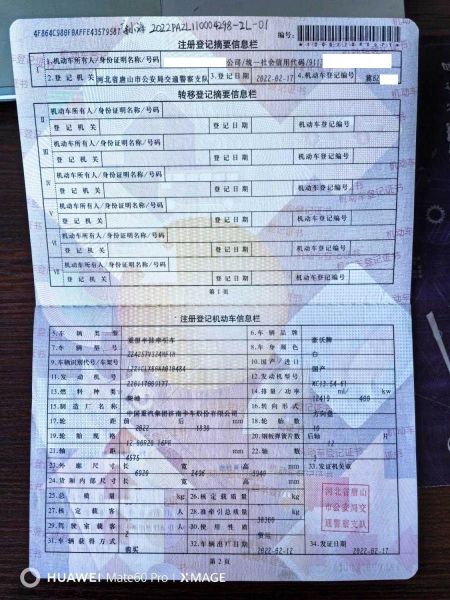 4F864C980FBAFFE43579587 2022PAZL110004298-ZL-01
注册登记摘要信息栏 编号:
1.机动车所有人/身份证明名称/号码 公司/统一社会信用代码/911
2.登记机关 河北省唐山市公安局交通警察支队 3.登记日期 2022-02-17 4.机动车登记编号 冀B
转移登记摘要信息栏
II 机动车所有人/身份证明名称/号码
登记机关 登记日期 机动车登记编号
III 机动车所有人/身份证明名称/号码
登记机关 登记日期 机动车登记编号
IV 机动车所有人/身份证明名称/号码
登记机关 登记日期 机动车登记编号
V 机动车所有人/身份证明名称/号码
登记机关 登记日期 机动车登记编号
VI 机动车所有人/身份证明名称/号码
登记机关 登记日期 机动车登记编号
VII 机动车所有人/身份证明名称/号码
登记机关 登记日期 机动车登记编号
第1页
注册登记机动车信息栏
5.车辆类型 重型半挂牵引车 6.车辆品牌 豪沃牌
7.车辆型号 8.车身颜色 白
9.车辆识别代号/车架号 10.国产/进口 国产
11.发动机号 12.发动机型号 MC13.54-61
13.燃料种类 柴油 14.排量/功率 12419 ml/ 400 kw
15.制造厂名称 中国重汽集团济南卡车股份有限公司 16.转向形式 方向盘
17.轮距 前 2022 后 1830 mm 18.轮胎数 10
19.轮胎规格 12.00R20 18PR 20.钢板弹簧片数 后轴 12 片
21.轴距 4575 mm 22.轴数 3
23.外廓尺寸 长 6920 宽 2496 高 3940 mm 33.发证机关章
24.货厢内部尺寸 长 宽 高 mm
25.总质量 kg 26.核定载质量 kg
27.核定载客 人 28.准牵引总质量 kg
29.驾驶室载客 人 30.使用性质 货运
31.车辆获得方式 购买 32.车辆出厂日期 2022-02-12 34.发证日期 2022-02-17
河北省唐山
市公安局交
通警察支队
第2页
HUAWEI Mate60 Pro | XMAGE